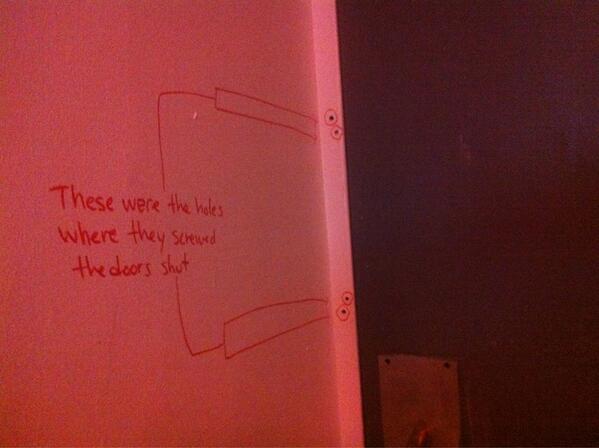 These were the holes
where they screwed
the doors shut